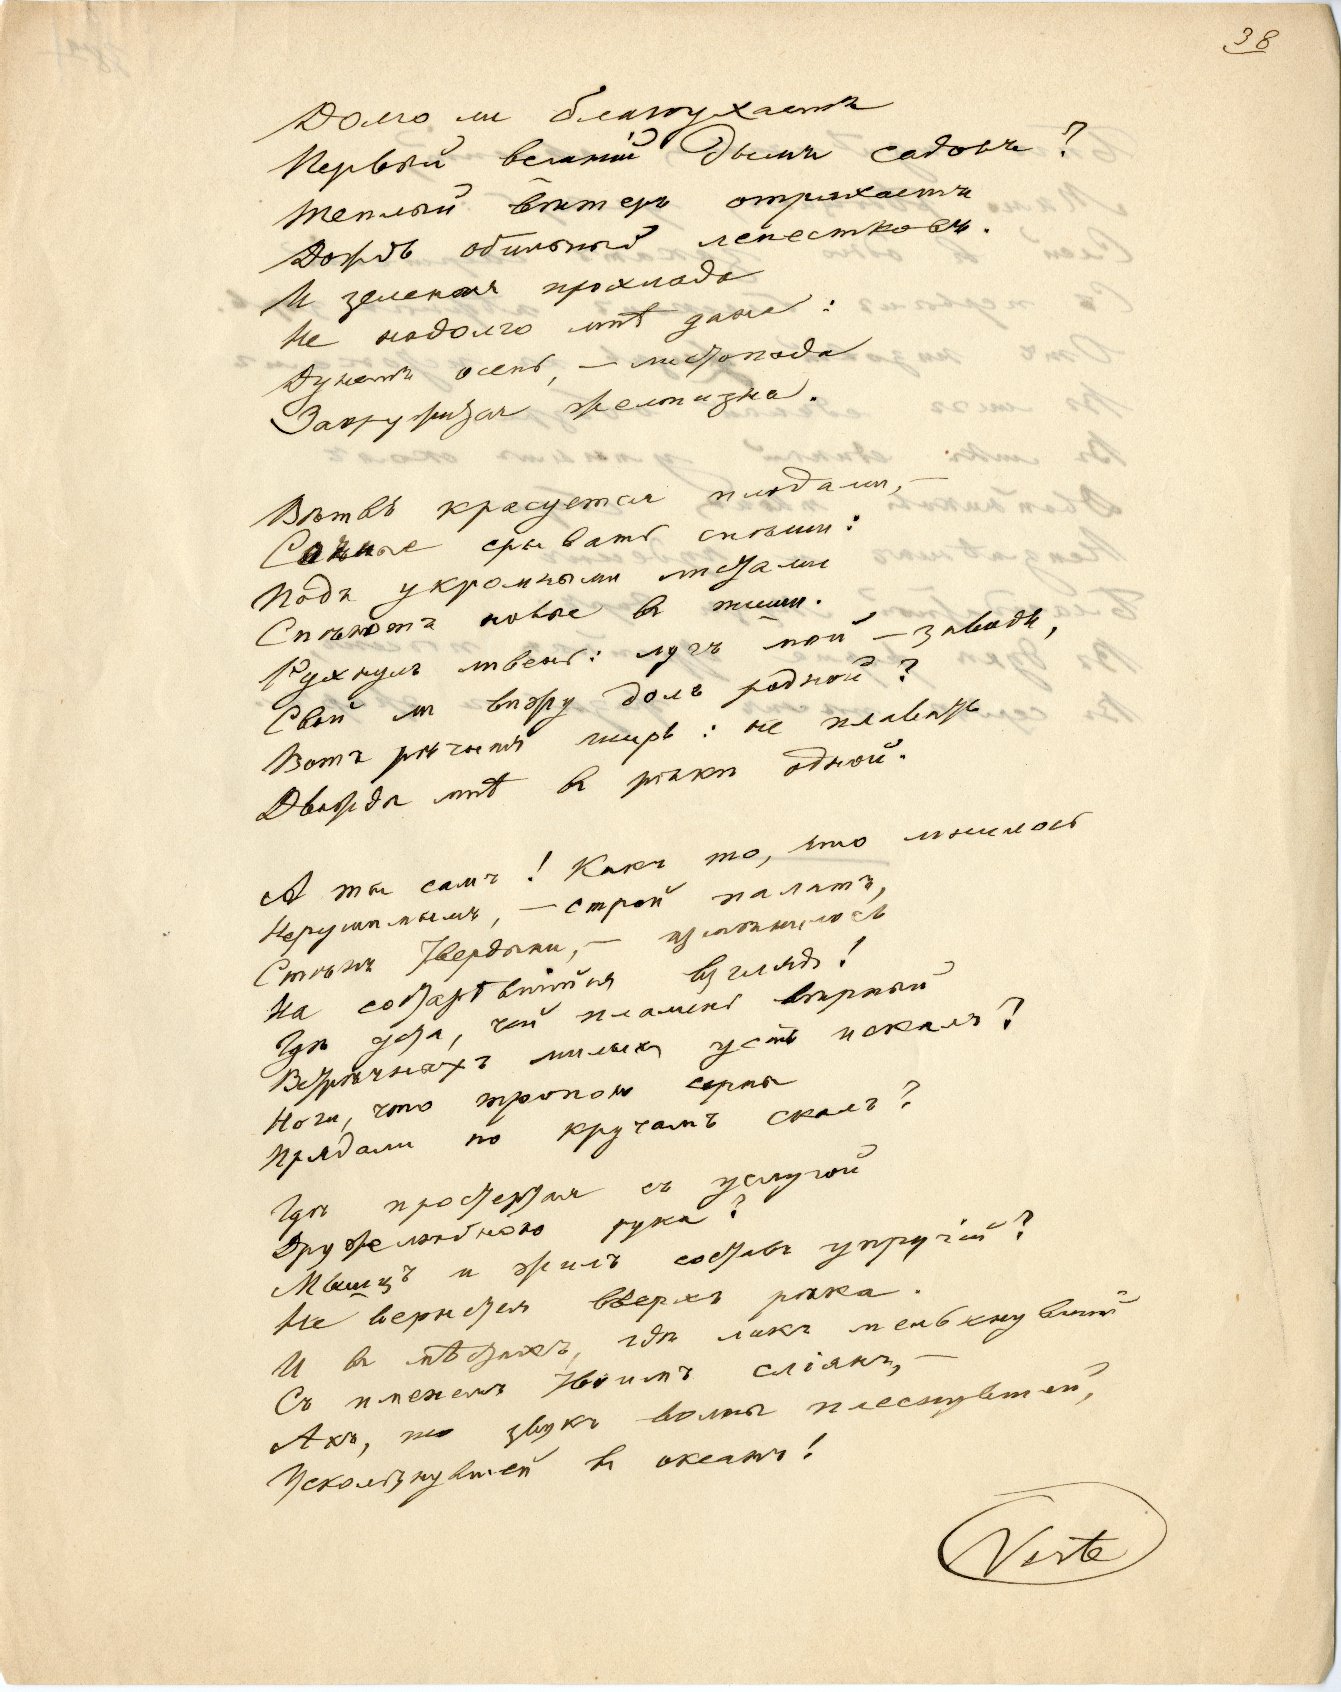 38
Долго ли благоухаетъ
Первый вешній дымъ садовъ?
Теплый вѣтеръ отряхаетъ
Дождь обильный лепестковъ.
И зеленая прохлада
Не надолго мнѣ дана:
Дунетъ осень, — листопада
Закружится желтизна.
Вѣтвь красуется плодами, —
Сочные срывать спѣши:
Подъ укромными листами
Спѣютъ новые въ тиши.
Рухнулъ ливень: лугъ твой — заводь,
Свой ли вижу долъ родной?
Вотъ рѣчная ширь: не плавать
Дважды мнѣ въ рѣкѣ одной.
А ты самъ! Какъ то, что мнилось
Нерушимымъ, — строй палатъ,
Стѣнъ твердыни, — измѣнилось
На состарѣвшійся взглядъ!
Гдѣ уста, чей пламень вѣрный
Встрѣчныхъ милыхъ устъ искалъ?
Ноги, что тропою серны
Прядали по кручамъ скалъ?
Гдѣ простертая съ услугой
Дружелюбною рука?
Мышцъ и жилъ составъ упругій?
Не вернется вверхъ рѣка.
И въ мѣстахъ, гдѣ ликъ мелькнувшій
Съ именемъ твоимъ сліянъ, —
Ахъ, то звукъ волны плеснувшей,
Ускользнувшей въ океанъ!
Verte